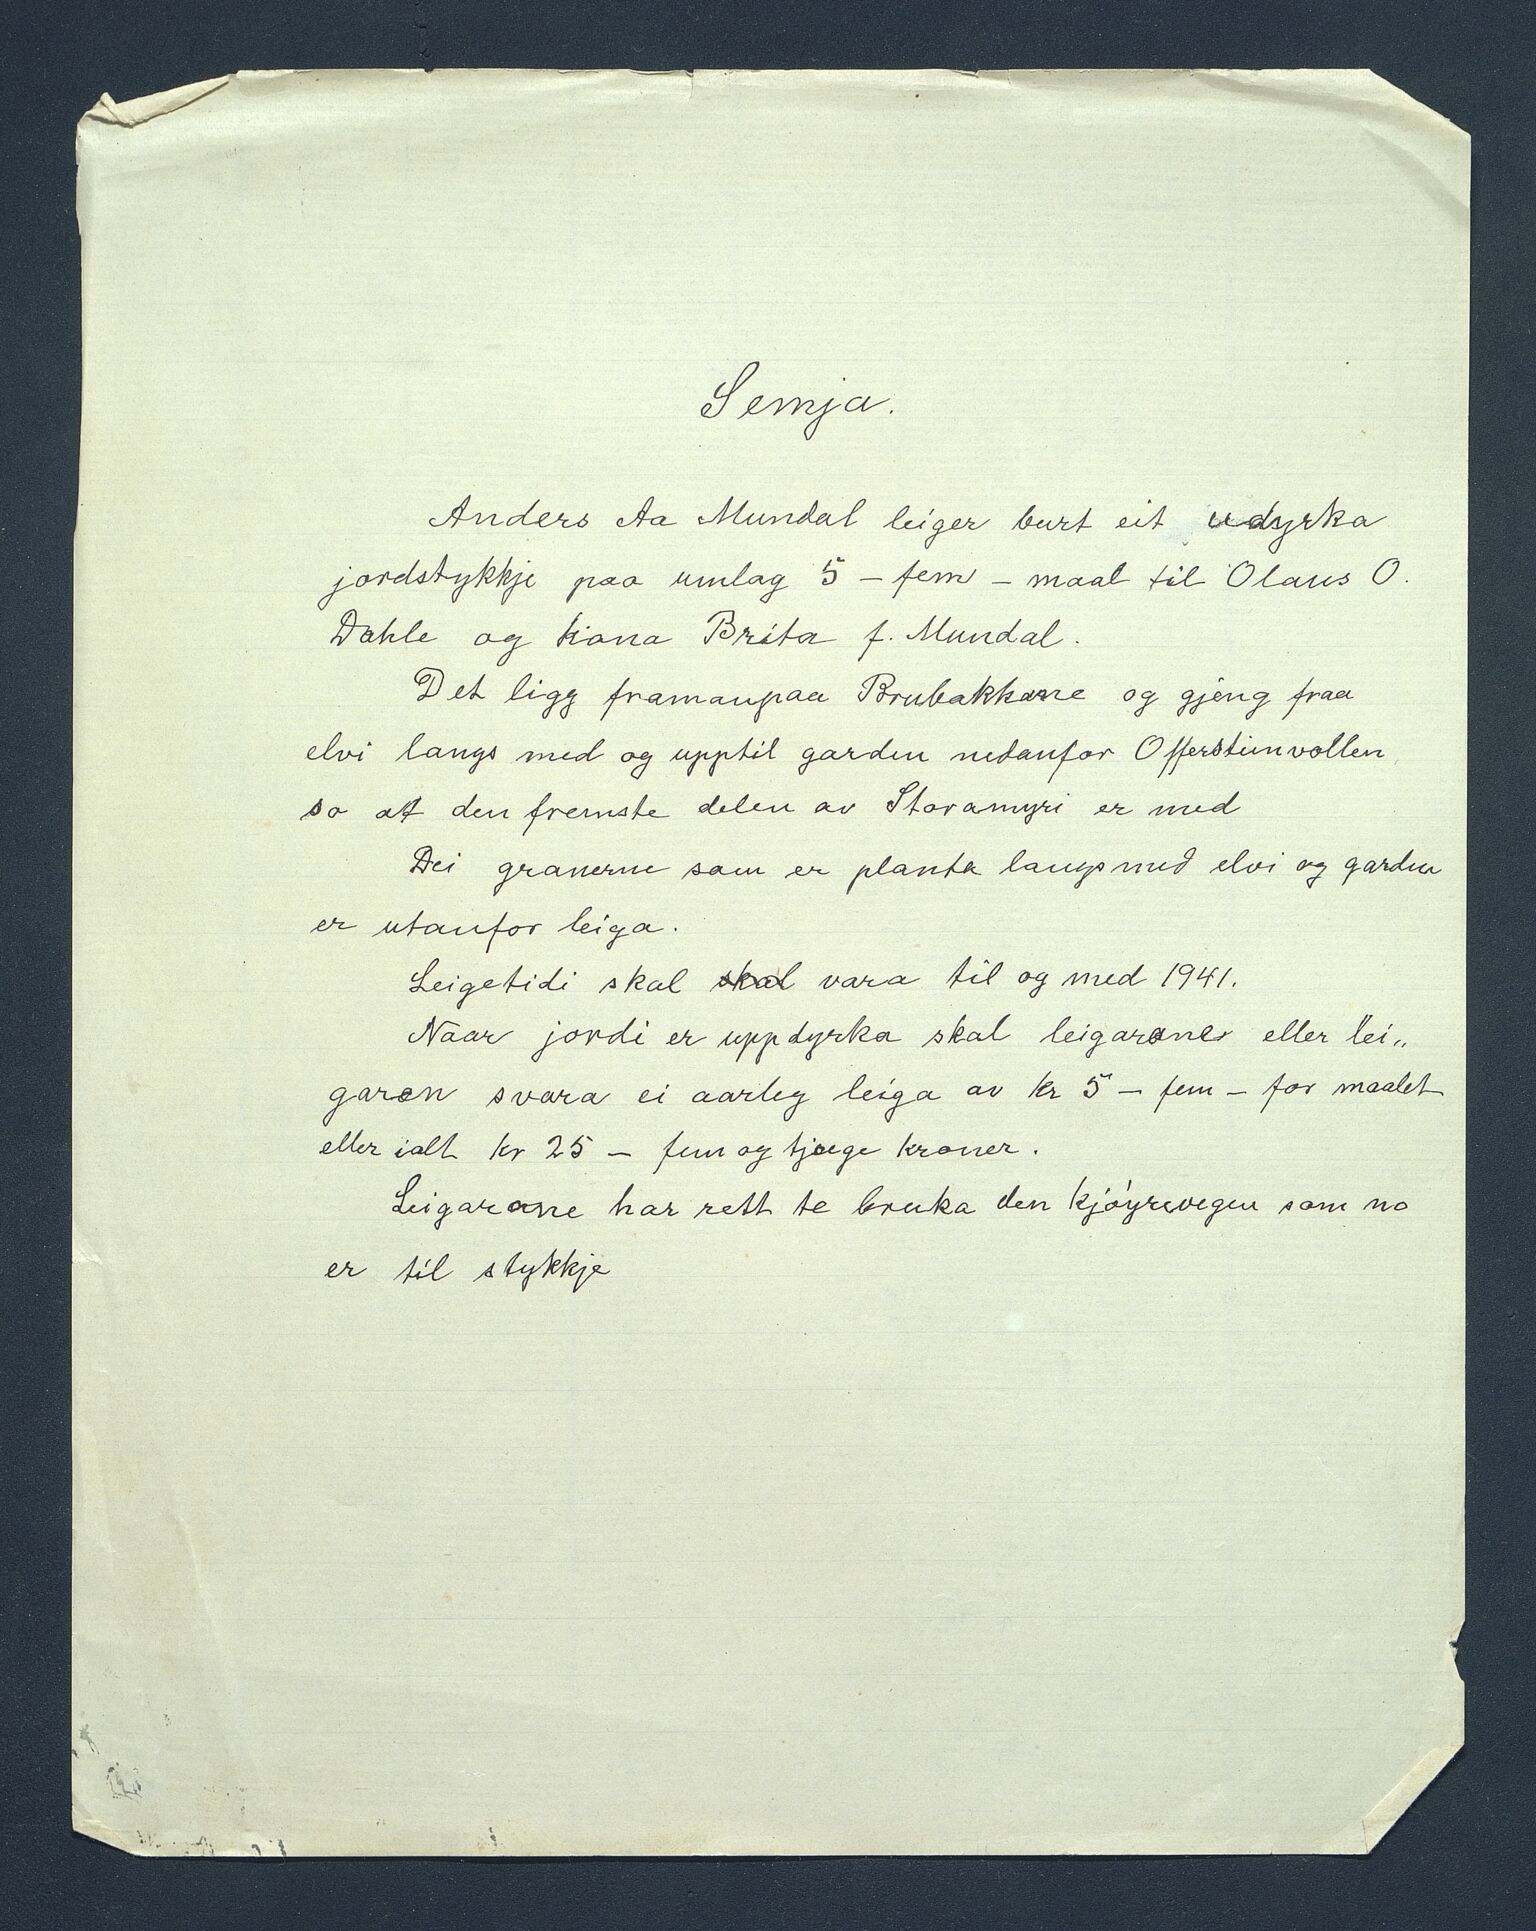 Semja.
Anders Aa Mundal leiger burt eit udyrka
jordstykkje paa umlag 5 – fem – maal til Olaus O.
Dahle og kona Brita f. Mundal.
Det ligg framanpaa Brubakkane og gjeng fraa
elvi langs med og upptil garden nedanfor Offersteinvollen
so at den fremste delen av Storamyri er med
Dei granerne som er planta langsmed elvi og garden
er utanfor leiga.
Leigetidi skal skal vara til og med 1941.
Naar jordi er uppdyrka skal leigarane eller lei„
garen svara ei aarleg leiga av kr 5 – fem – for maalet
eller ialt kr 25 – fem og tjuge kroner.
Leigarane har rett te bruka den kjøyrevegen som no
er til stykkje